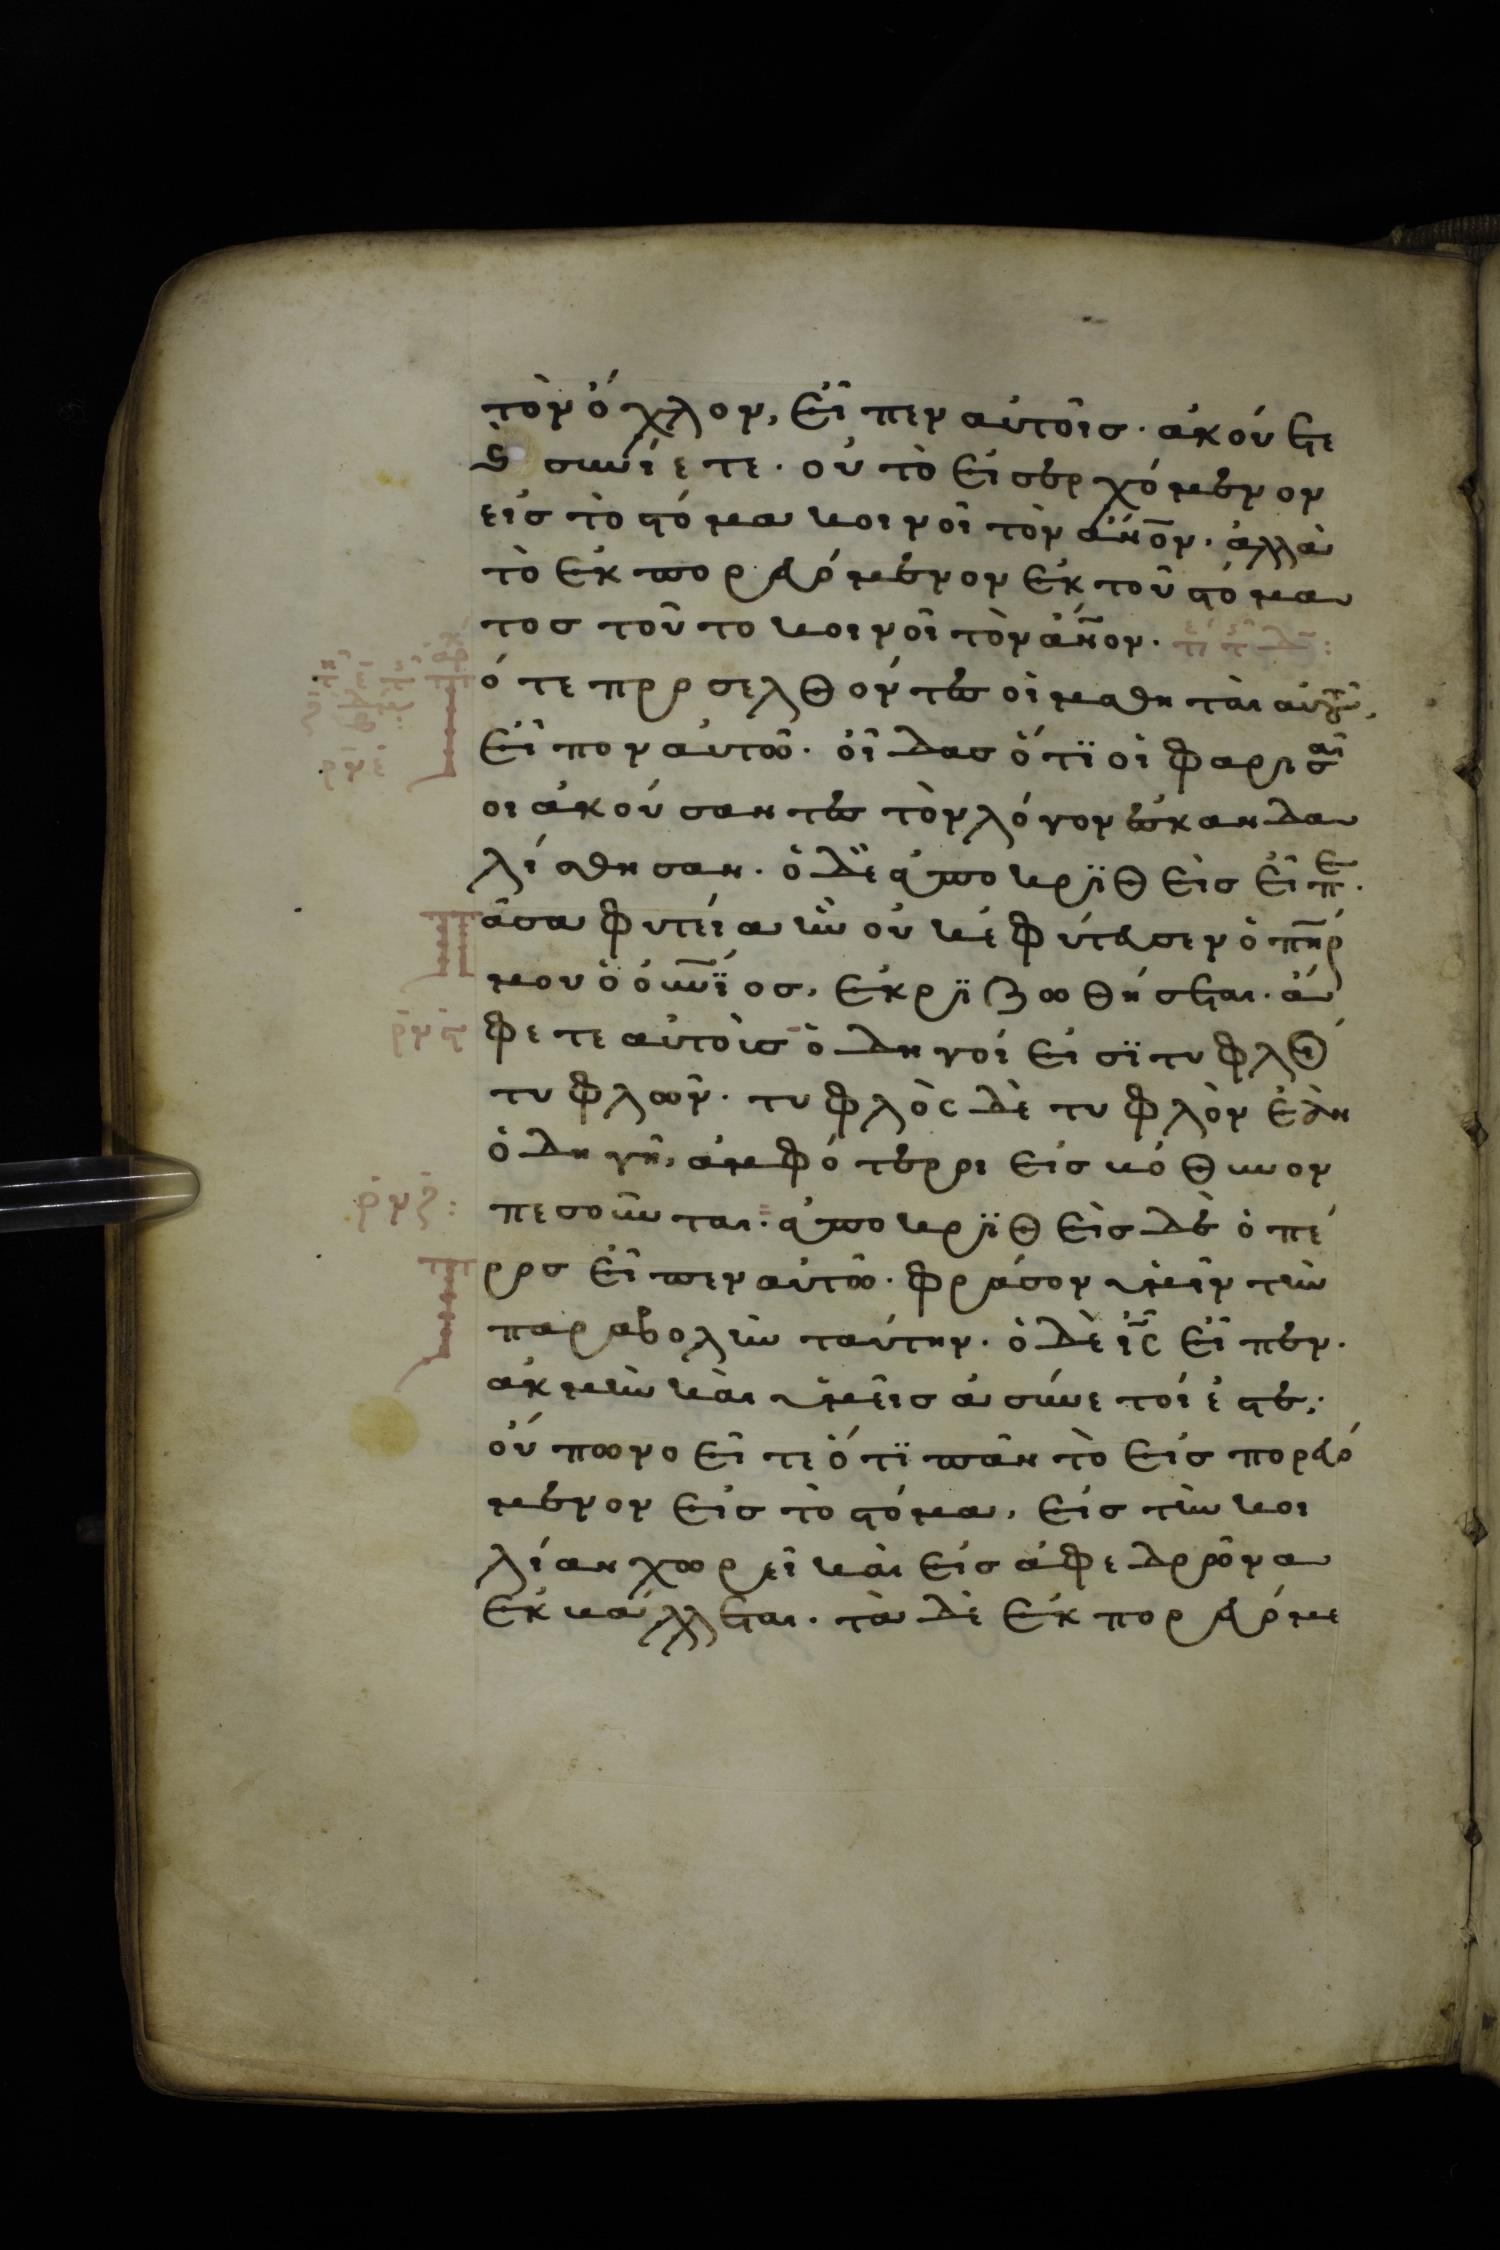 τὸν ὄχλον, εἶπεν αὐτοῖσ· ἀκούετε
ϗ συνίετε· οὐ τὸ εἰσερχόμενον
εἰσ τὸ στόμα κοινοῖ τὸν ἄνον· ἀλλὰ
τὸ ἐκπορευόμενον ἐκ τοῦ στόμα
τοσ τοῦτο κοινοῖ τὸν ἄνον·
ότε προσελθόντεσ οἱ μαθηταὶ αὐτοῦ,
εἶπον αὐτῶ· οἶδασ ὅτϊ οἱ φαρισαῖ
οι ἀκούσαντεσ τὸν λόγον ἐσκανδα
λίσθησαν· ὁ δὲ ἀποκρϊθεὶσ εἶπε·
ᾶσα φυτεία ἣν οὐκ ἐφύτευσεν ὁ πηρ
μου ὁ οὐνϊοσ, ἐκρϊζωθήσεται· ἄ
φετε αὐτοὺσ ὁδηγοί εἰσϊ τυφλοὶ
τυφλῶν· τυφλὸς δὲ τυφλὸν ἐὰν
ὁδηγῆ, ἀμφότεροι εἰσ βόθυνον
πεσοῦνται· ἀποκρϊθεὶσ δὲ ὁ πέ
τροσ εἶπεν αὐτῶ· φράσον ἡμῖν τὴν
παραβολὴν ταύτην· ὁ δὲ ις εἶπεν·
ἀκμὴν καὶ ὑμεῖσ ἀσύνετοί ἐστε;
οὔπω νοεῖτε ὅτϊ πᾶν τὸ εἰσπορευό
μενον εἰσ τὸ στόμα, εἰσ τὴν κοι
λίαν χωρεῖ καὶ εἰσ ἀφεδρῶνα
ἐκβάλλεται· τὰ δὲ ἐκπορευόμε